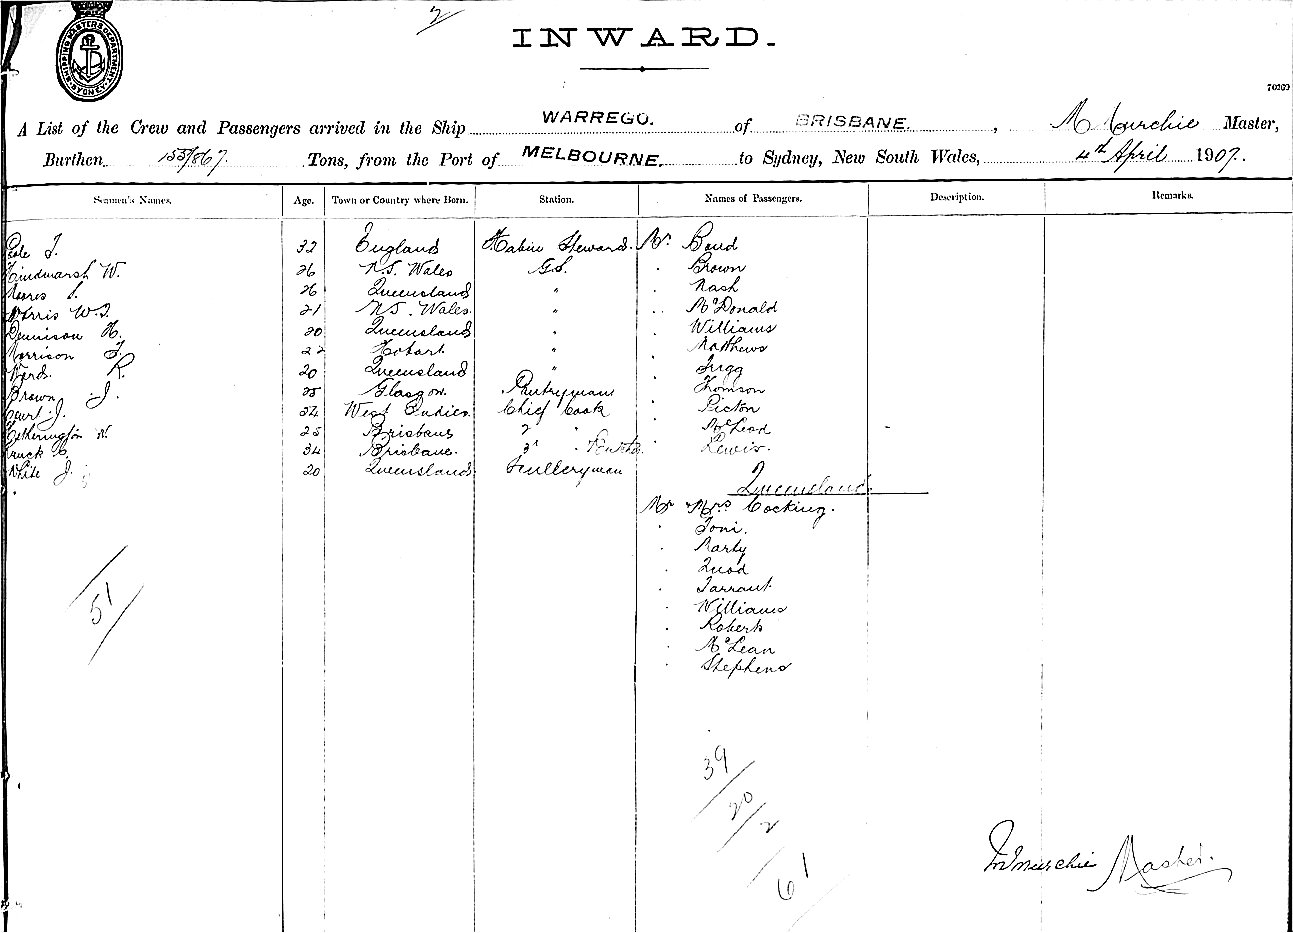 2
INWARD.
SHIPPING MASTERS DEPARTMENT SYDNEY
70269
A List of the Crew and Passengers arrived in the Ship WARREGO. of BRISBANE, M Murchie Master,
Burthen 1557/867. Tons, from the Port of MELBOURNE. to Sydney, New South Wales, 4th April 1907.
Seamen's Names. Age. Town or Country where Born. Station. Names of Passengers. Description. Remarks.
T. 32 England Cabin Steward. Mr. Bond
Hindmarsh W. 26 N.S. Wales G.S. . Brown
26 Queensland " . Nash
21 N.S. Wales. " . McDonald
Dennison H. 20 Queensland " . Williams
Morrison 22 Hobart. " . Matthews
R. 20 Queensland " .
Brown J. Glasgow. Pantryman . Thomson
J. West Indies. Chief Cook . Picton
Hetherington W. 25 Brisbane 2 " . McLeod
34 Brisbane. 3 " . Lewis.
White J. 20 Queensland Sculleryman
Queensland.
Mr. Mrs. Cocking.
. Toni.
. Marty
. Quod
. Tarrant
. Williams
. Roberts
. McLean
. Stephens
51
39
20/2
61
M Murchie Master.